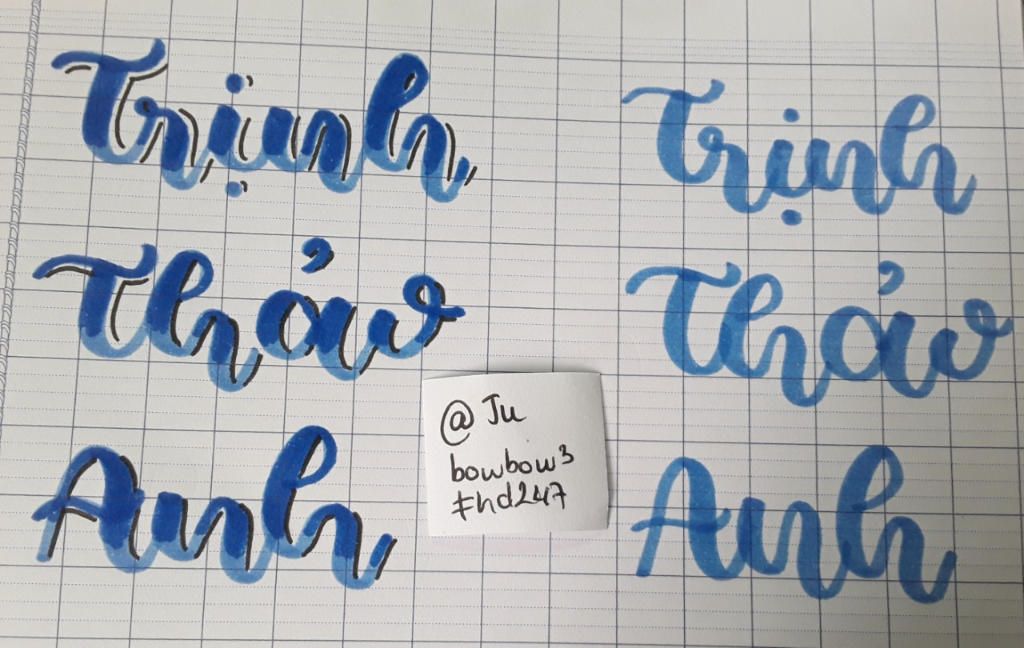 Trịnh Trịnh
Thảo Thảo
@ Ju
bowbow3
#hd247
Anh Anh